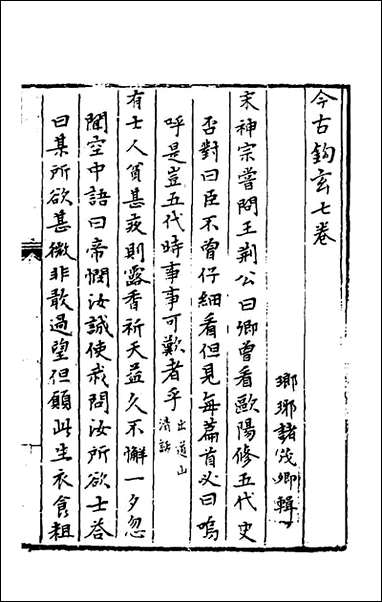 今古鈎玄七卷
瑯琊諸茂卿輯
宋神宗嘗問王荆公曰卿曾看歐陽修五代史
否對曰臣不曾仔細看但見每篇首必曰嗚
呼是豈五代時事事可歎者乎出道山清話
有士人貧甚夜則露香祈天益久不懈一夕忽
聞空中語曰帝憫汝誠使我問汝所欲士答
曰某所欲甚微非敢過望但願此生衣食粗